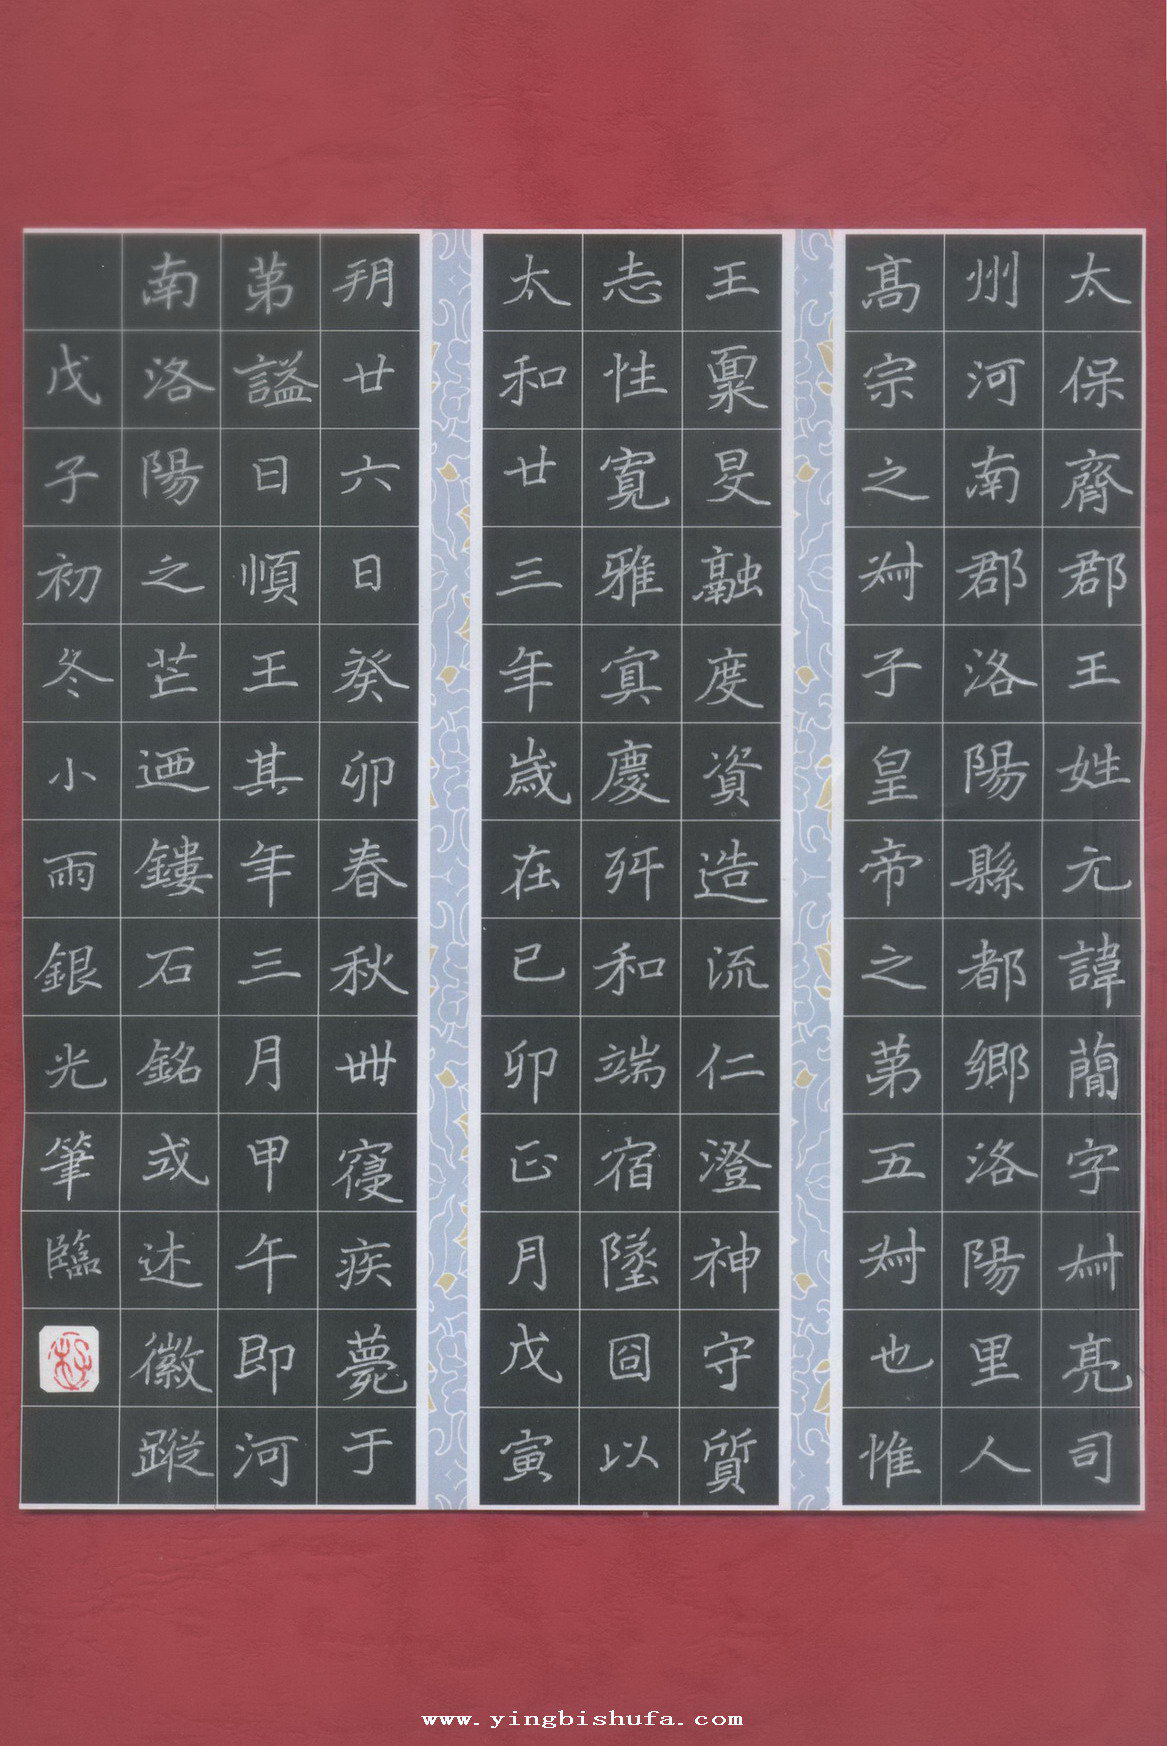 太保齊郡王姓元諱蕳字叔亮司
州河南郡洛陽縣都鄉洛陽里人
髙宗之叔子皇帝之苐五叔也惟
王稟旻融度資造流仁澄神守質
志性寬雅寘慶舛和端宿墜囧以
太和廿三年歲在己卯正月戊寅
朔廿六日癸卯春秋卌寑疾薨于
苐諡曰順王其年三月甲午即河
南洛陽之芒迺鏤石銘或述徽蹤
戊子初冬小雨銀光筆臨
www.yingbishufa.com